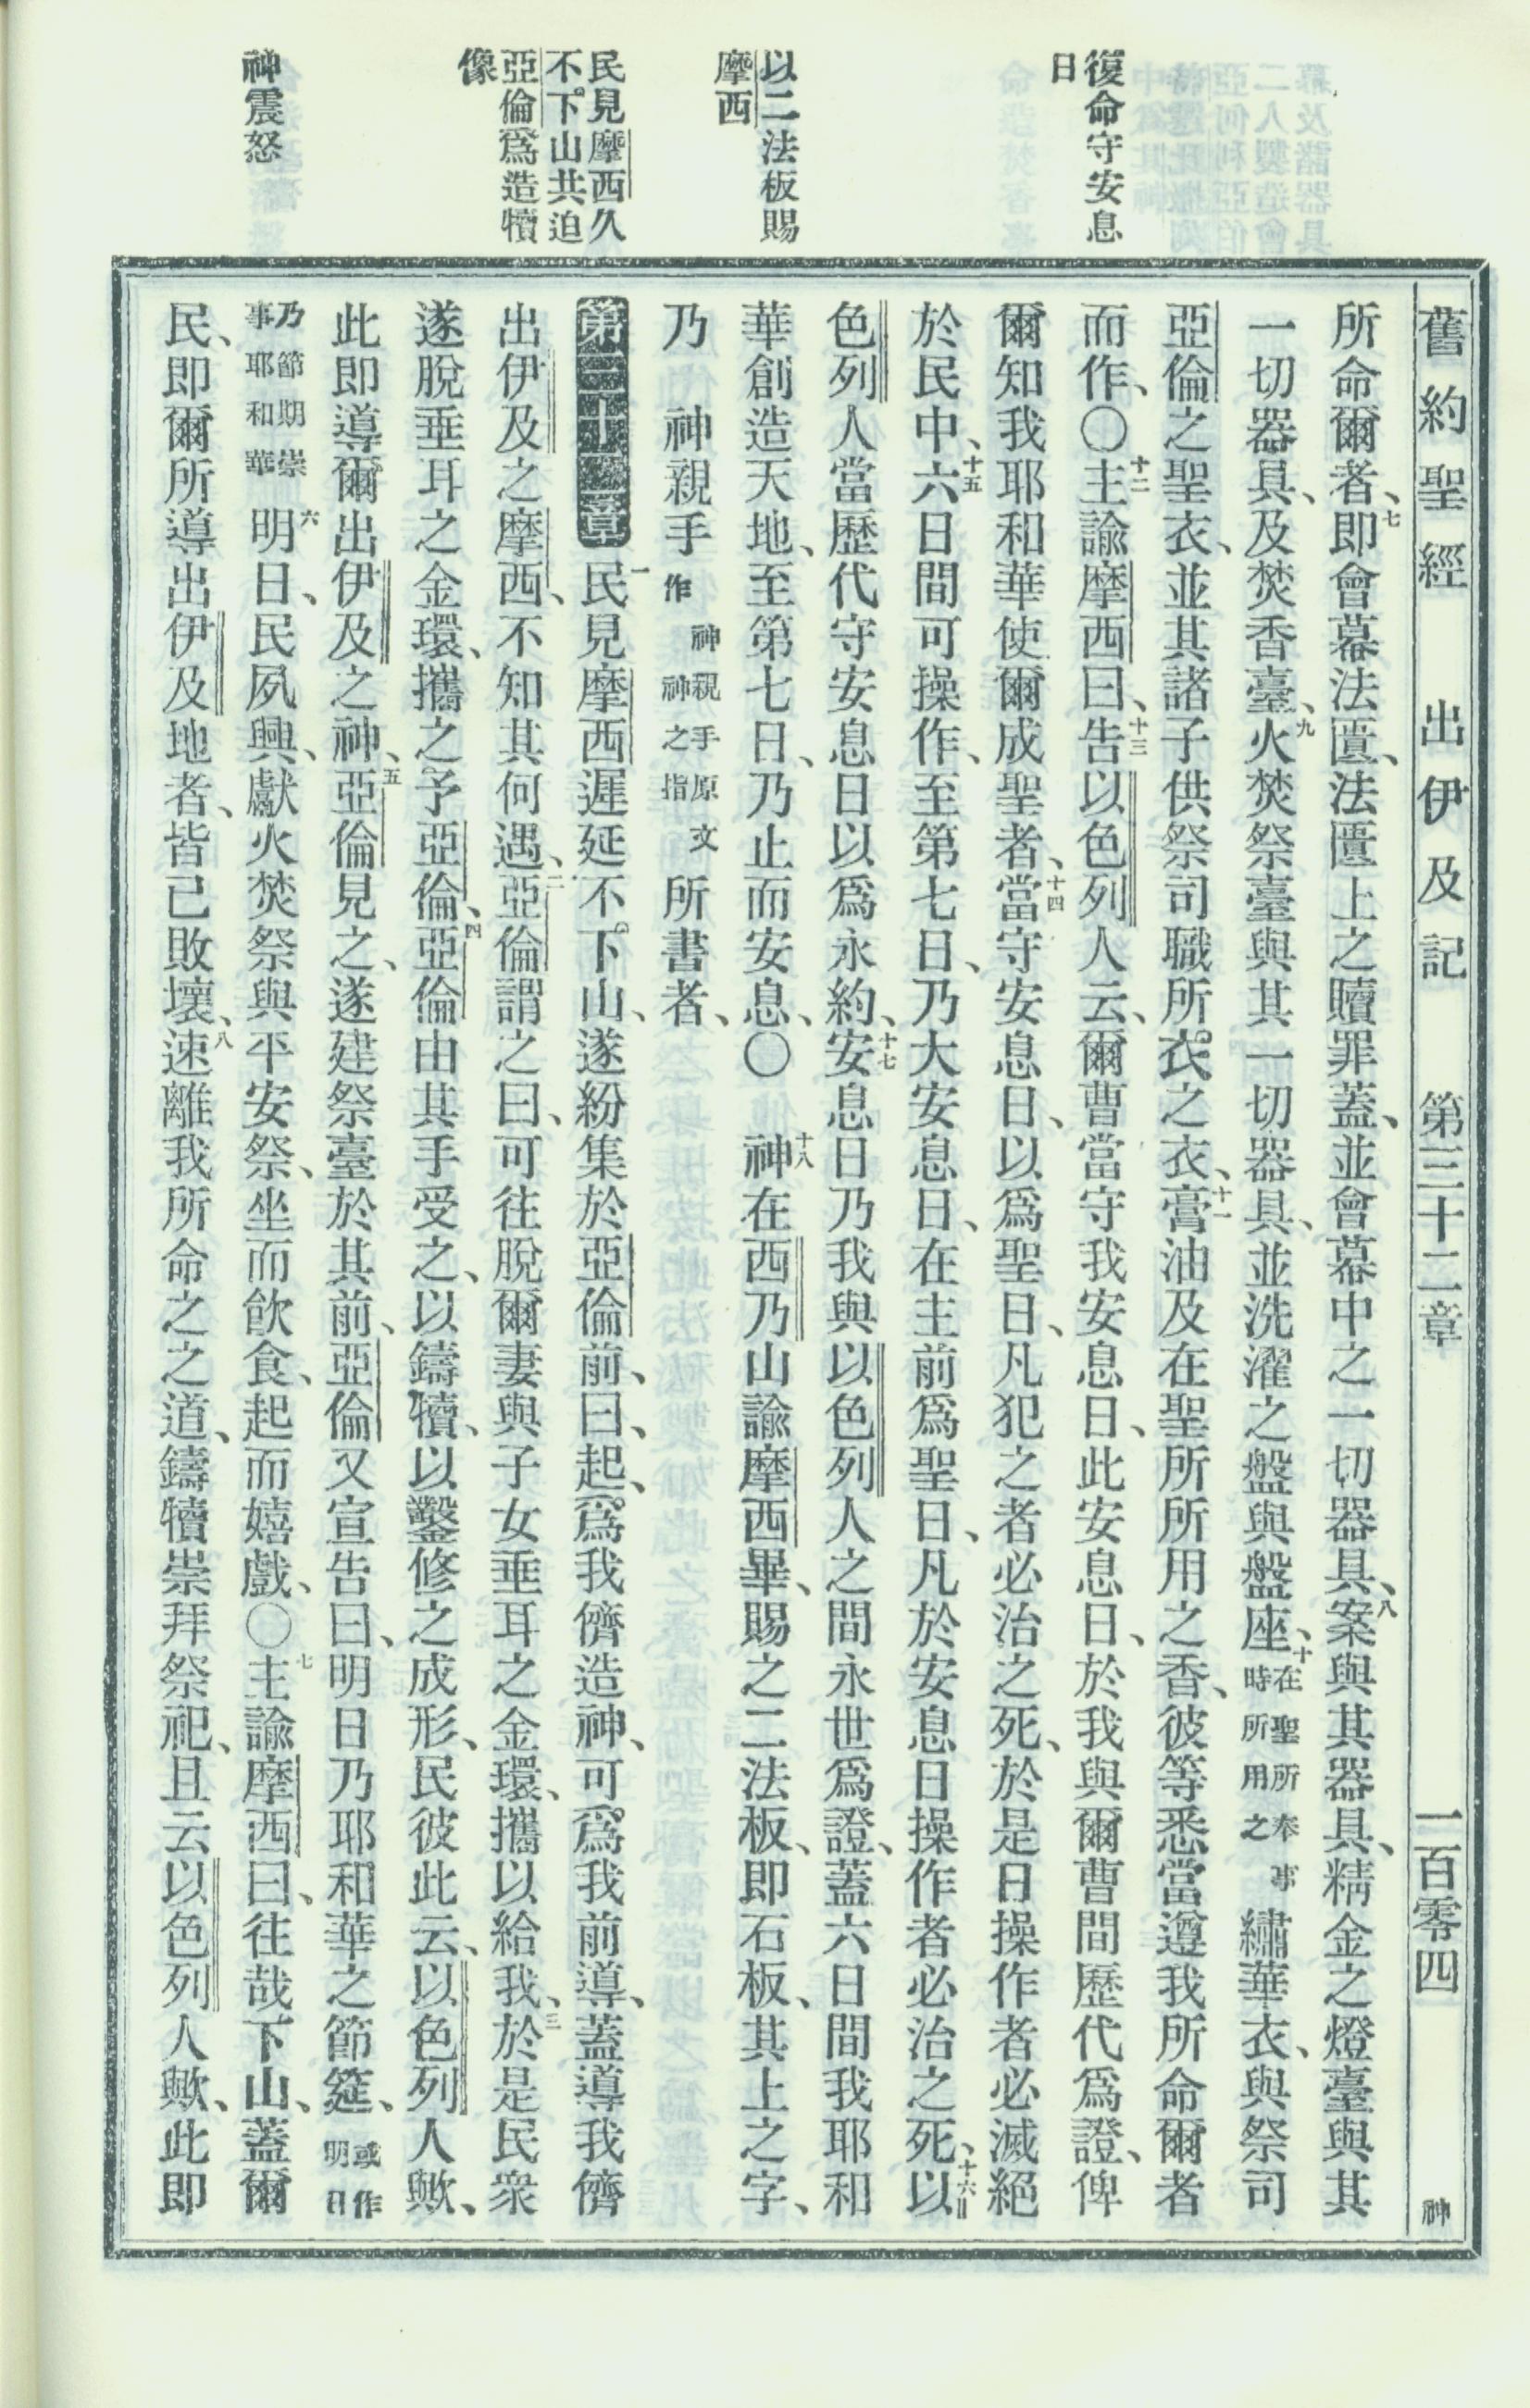 舊約聖經 出伊及記 第三十二章 一百零四 神
復命守安息
日
以二法板賜
摩西
民見摩西久
不下山共迫
亞倫爲造犢
像
神震怒
所命爾者、七即會幕法匱、法匱上之贖罪蓋、並會幕中之一切器具、八案與其器具、精金之燈臺與其
一切器具、及焚香臺、九火焚祭臺與其一切器具、並洗濯之盤與盤座、十在聖所奉事時所用之繡華衣、與祭司
亞倫之聖衣、並其諸子供祭司職所衣之衣、十一膏油及在聖所所用之香、彼等悉當遵我所命爾者
而作、〇十二主諭摩西曰、十三告以色列人云、爾曹當守我安息日、此安息日、於我與爾曹間歷代爲證、俾
爾知我耶和華使爾成聖者、十四當守安息日、以爲聖日、凡犯之者必治之死、於是日操作者必滅絕
於民中、十五六日間可操作、至第七日、乃大安息日、在主前爲聖日、凡於安息日操作者必治之死、十六以
色列人當歷代守安息日以爲永約、十七安息日乃我與以色列人之間永世爲證、蓋六日間我耶和
華創造天地、至第七日、乃止而安息、〇十八神在西乃山諭摩西畢、賜之二法板、即石板、其上之字、
乃 神親手作神親手原文神之指所書者、
第三十二章 一民見摩西遲延不下山、遂紛集於亞倫前、曰、起、爲我儕造神、可爲我前導、蓋導我儕
出伊及之摩西、不知其何遇、二亞倫謂之曰、可往脫爾妻與子女垂耳之金環、攜以給我、三於是民衆
遂脫垂耳之金環、攜之予亞倫、四亞倫由其手受之、以鑄犢、以鑿修之成形、民彼此云、以色列人歟、
此即導爾出伊及之神、五亞倫見之、遂建祭臺於其前、亞倫又宣告曰、明日乃耶和華之節筵、或作明日
乃節期崇事耶和華六明日、民夙興、獻火焚祭與平安祭、坐而飲食、起而嬉戲、〇七主諭摩西曰、往哉下山、蓋爾
民、即爾所導出伊及地者、皆已敗壞、八速離我所命之之道、鑄犢崇拜祭祀、且云以色列人歟、此即